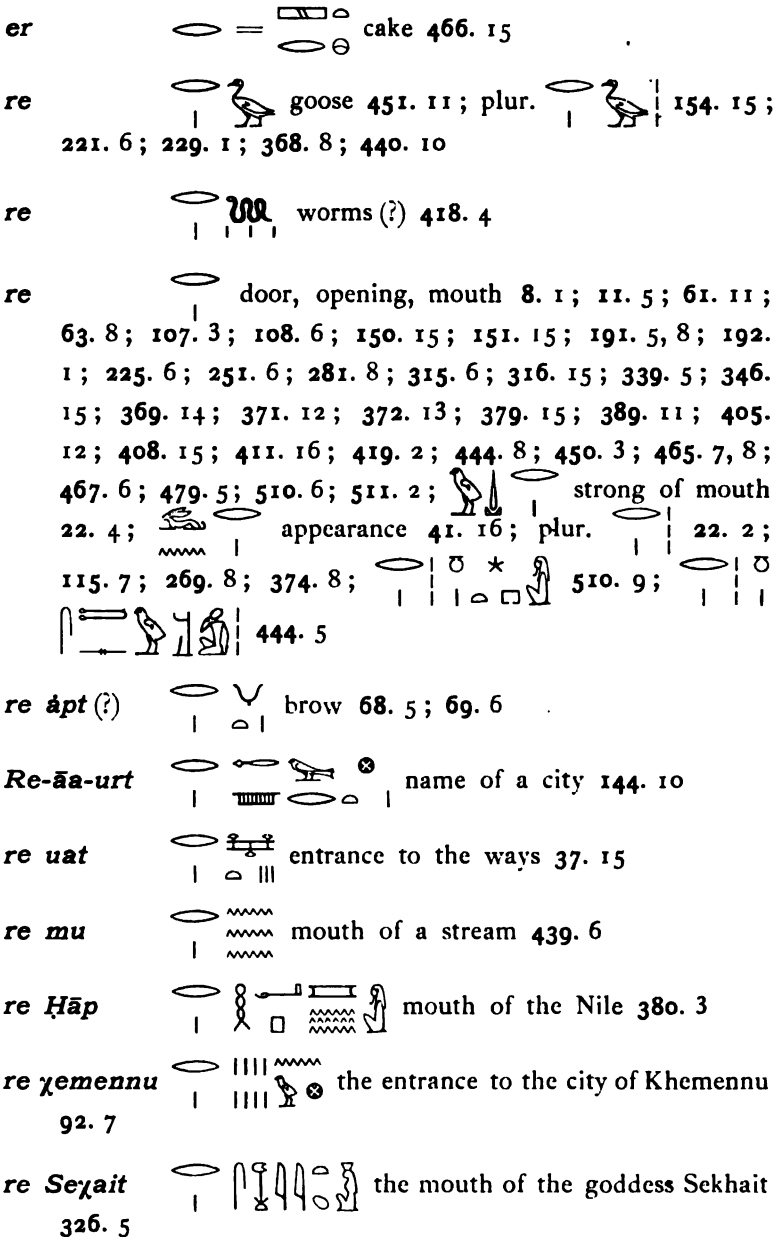 er 𓂋 = cake 466. 15
re 𓂋𓏤𓅬 goose 451. 11 ; plur. 𓂋𓏤𓅬𓏥 154. 15 ;
221. 6 ; 229. 1 ; 368. 8 ; 440. 10
re 𓂋𓏤𓆙𓏥 worms (?) 418. 4
re 𓂋𓏤 door, opening, mouth 8. 1 ; 11. 5 ; 61. 11 ;
63. 8 ; 107. 3 ; 108. 6 ; 150. 15 ; 151. 15 ; 191. 5, 8 ; 192.
1 ; 225. 6 ; 251. 6 ; 281. 8 ; 315. 6 ; 316. 15 ; 339. 5 ; 346.
15 ; 369. 14 ; 371. 12 ; 372. 13 ; 379. 15 ; 389. 11 ; 405.
12 ; 408. 15 ; 411. 16 ; 419. 2 ; 444. 8 ; 450. 3 ; 465. 7, 8 ;
467. 6 ; 479. 5 ; 510. 6 ; 511. 2 ; 𓂋𓏤 strong of mouth
22. 4 ; 𓃹𓈖𓂋𓏤 appearance 41. 16 ; plur. 𓂋𓏤𓏥 22. 2 ;
115. 7 ; 269. 8 ; 374. 8 ; 𓂋𓏤𓏥 510. 9 ; 𓂋𓏤𓏥
444. 5
re ȧpt (?) 𓂋𓏤𓄋𓏏𓏤 brow 68. 5 ; 69. 6
Re-āa-urt 𓂋𓏤𓉻𓅨𓂋𓏏𓊖𓏤 name of a city 144. 10
re uat 𓂋𓏤𓈐𓏏𓏥 entrance to the ways 37. 15
re mu 𓂋𓏤𓈗 mouth of a stream 439. 6
re Ḥāp 𓂋𓏤𓎛𓂝𓊪𓈘𓈗 mouth of the Nile 380. 3
re χemennu 𓂋𓏤𓐁𓈖𓅱𓊖 the entrance to the city of Khemennu
92. 7
re Seχait 𓂋𓏤𓋴𓇋𓇋𓏏𓆇 the mouth of the goddess Sekhait
326. 5